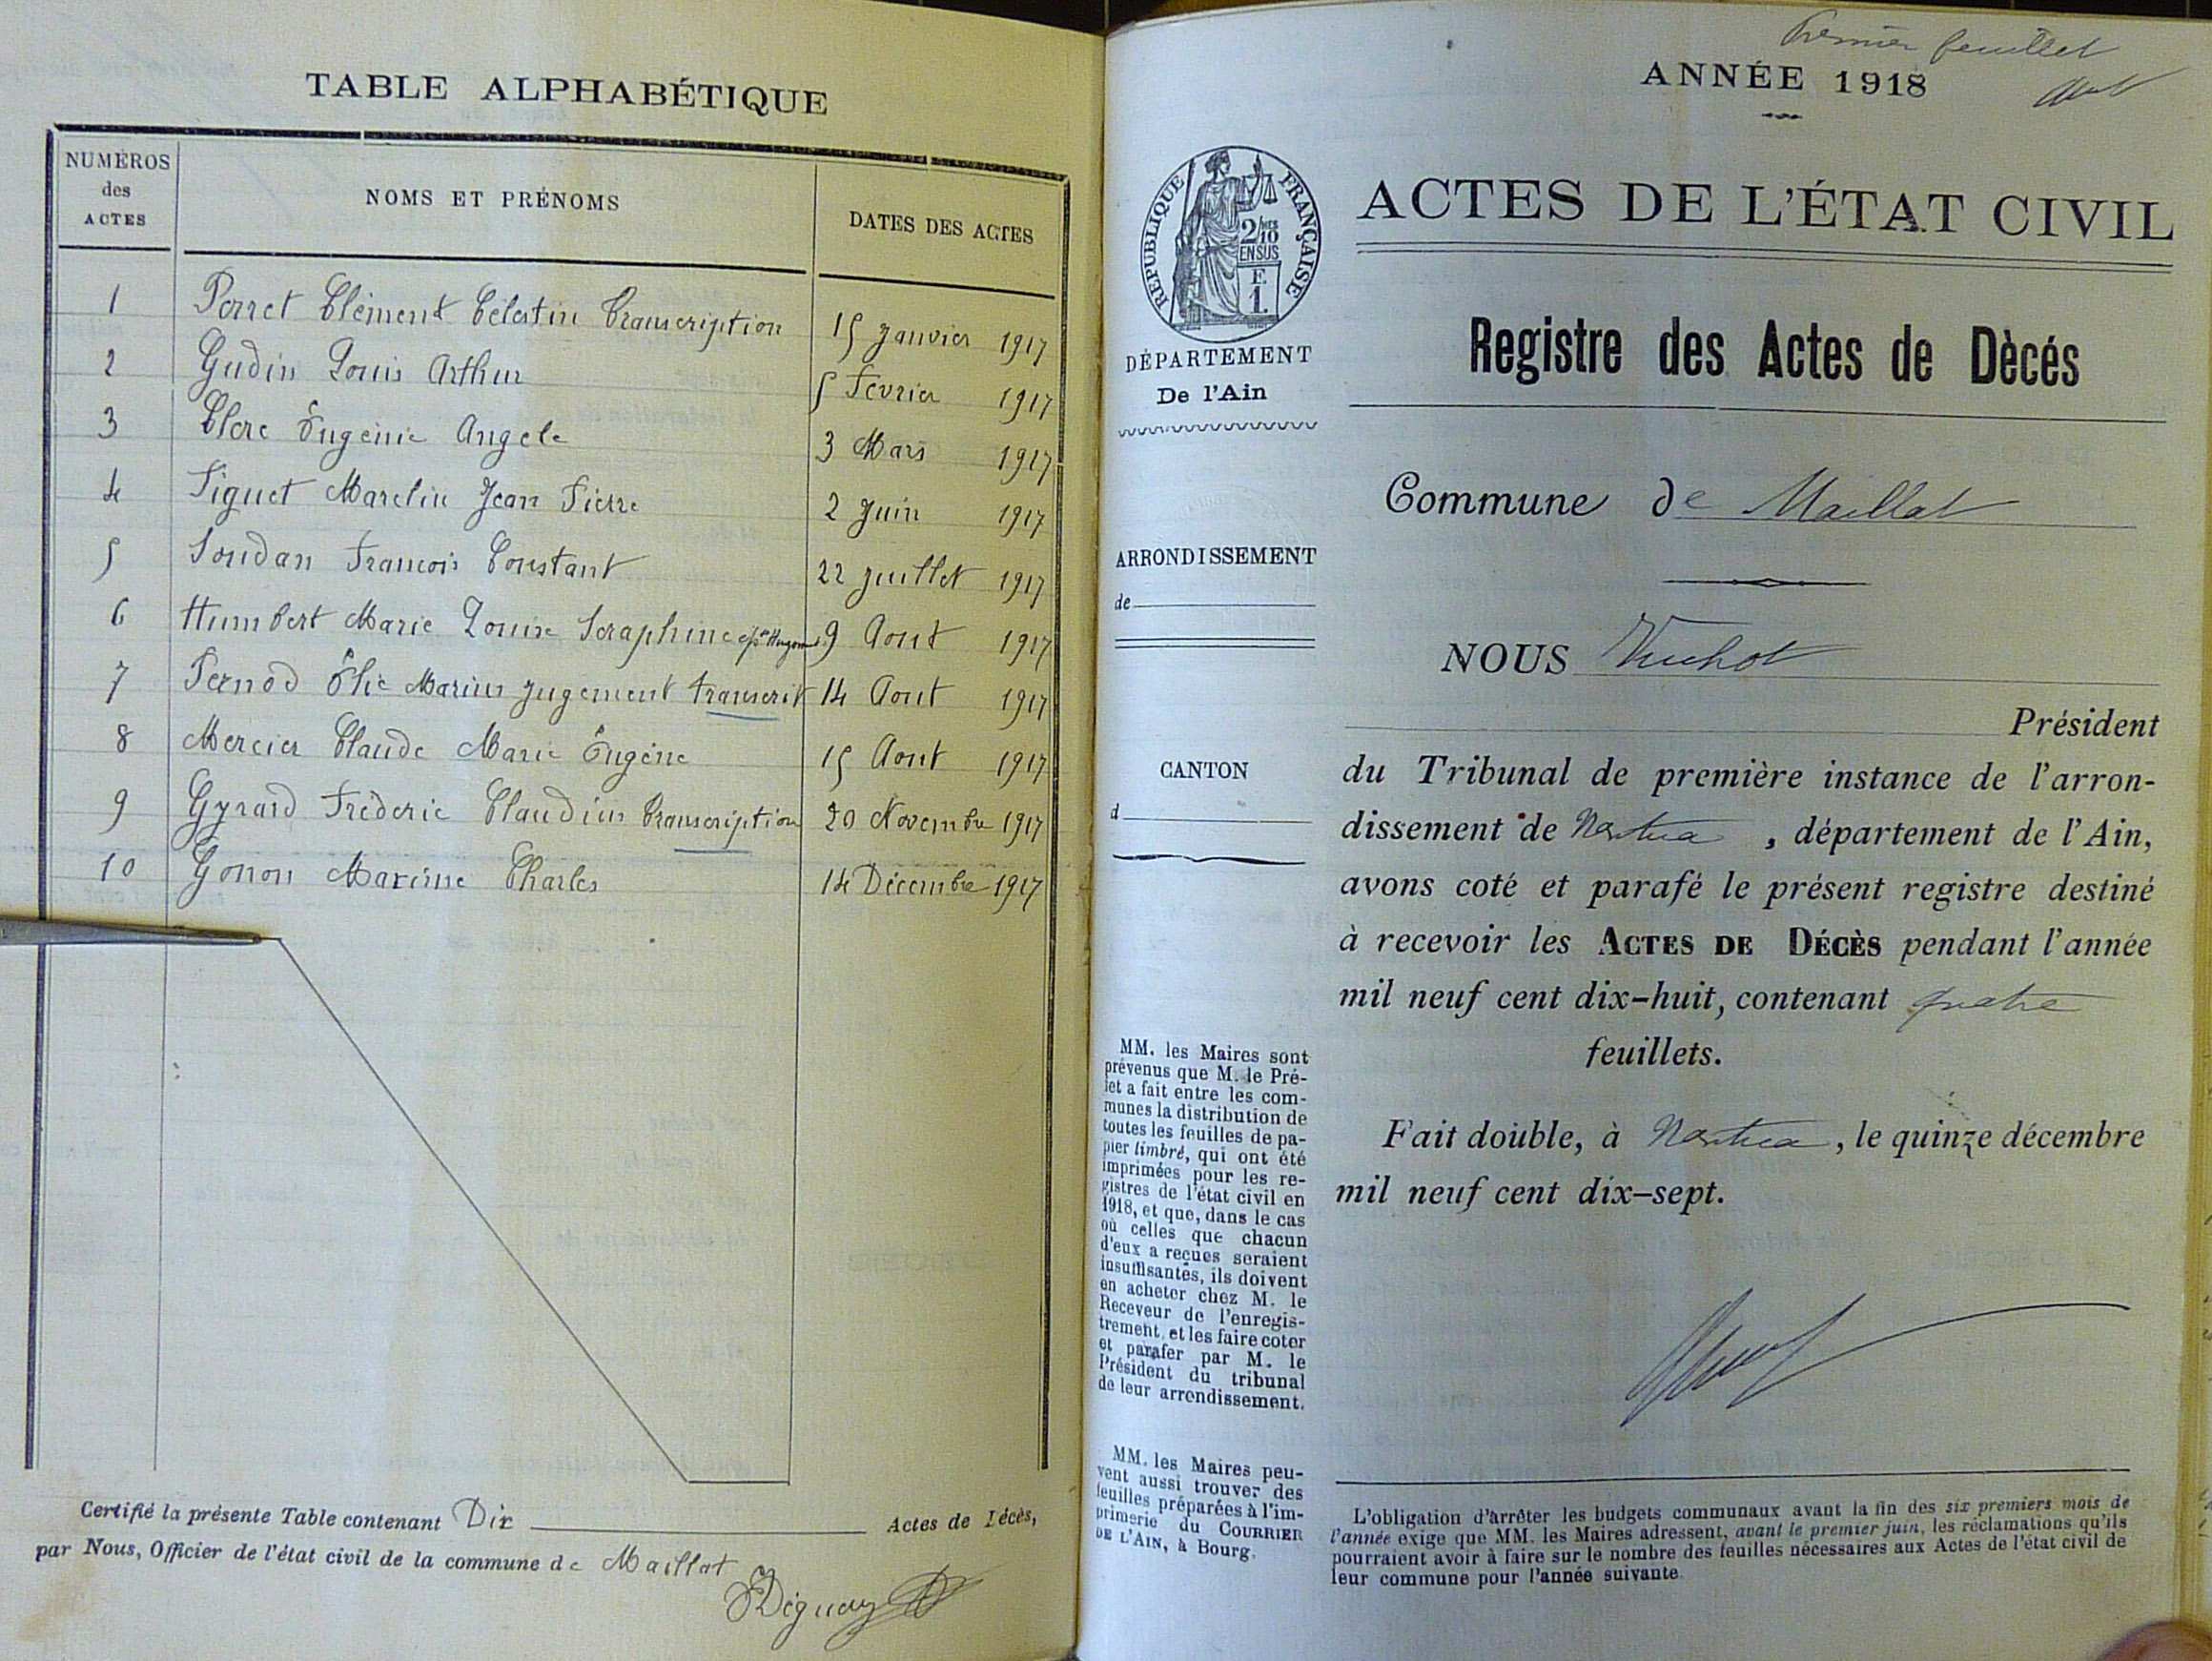 TABLE ALPHABÉTIQUE
NUMÉROS
des
ACTES
NOMS ET PRÉNOMS
DATES DES ACTES
1 Perret Clément Célestin Transcription 15 Janvier 1917
2 Gudin Louis Arthur 5 Février 1917
3 Clerc Eugénie Angele 3 Mars 1917
4 Piguet Marclin Jean Pierre 2 Juin 1917
5 Soudan Francois Constant 22 Juillet 1917
6 Humbert Marie Louise Seraphine 9 Aout 1917
7 Pernod Élie Marius Jugement transcrit 14 Aout 1917
8 Mercier Claude Marie Eugène 15 Aout 1917
9 Gyrard Fréderic Claudius Transcription 20 Novembre 1917
10 Gonon Maxime Charles 14 Décembre 1917
Certifié la présente Table contenant Dix Actes de Décès,
par Nous, Officier de l'état civil de la commune de Maillat
Premier feuillet
ANNÉE 1918
RÉPUBLIQUE FRANÇAISE
2/10
EN SUS
F
1.
ACTES DE L'ÉTAT CIVIL
DÉPARTEMENT
De l'Ain
ARRONDISSEMENT
de
CANTON
d
MM. les Maires sont
prévenus que M. le Pré-
fet a fait entre les com-
munes la distribution de
toutes les feuilles de pa-
pier timbré, qui ont été
imprimées pour les re-
gistres de l'état civil en
1918, et que, dans le cas
où celles que chacun
d'eux a reçues seraient
insuffisantes, ils doivent
en acheter chez M. le
Receveur de l'enregis-
trement, et les faire coter
et parafer par M. le
Président du tribunal
de leur arrondissement.
MM. les Maires peu-
vent aussi trouver des
feuilles préparées à l'im-
primerie du COURRIER
DE L'AIN, à Bourg.
Registre des Actes de Dècés
Commune de Maillat
NOUS Vuchot
Président
du Tribunal de première instance de l'arron-
dissement de Nantua, département de l'Ain,
avons coté et parafé le présent registre destiné
à recevoir les ACTES DE DÉCÈS pendant l'année
mil neuf cent dix-huit, contenant quatre
feuillets.
Fait double, à Nantua, le quinze décembre
mil neuf cent dix-sept.
L'obligation d'arrêter les budgets communaux avant la fin des six premiers mois de
l'année exige que MM. les Maires adressent, avant le premier juin, les réclamations qu'ils
pourraient avoir à faire sur le nombre des feuilles nécessaires aux Actes de l'état civil de
leur commune pour l'année suivante.